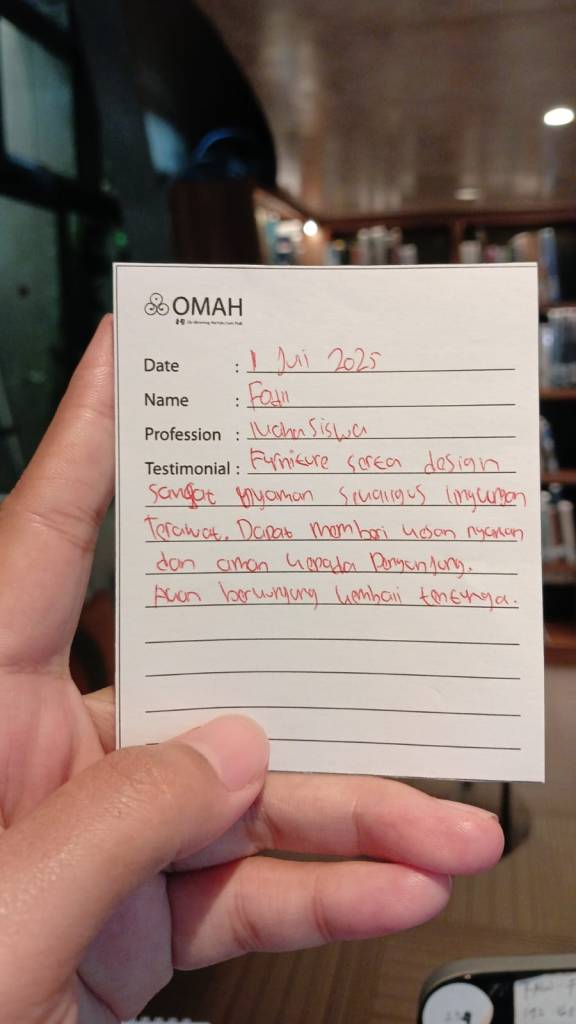 OMAH
Date : 1 Juli 2025
Name : Fadil
Profession : Mahasiswa
Testimonial : Furniture serta design
sangat nyaman sekaligus lingkungan
terawat. Dapat memberi kesan nyaman
dan aman kepada Pengunjung.
Akan berkunjung kembali tentunya.